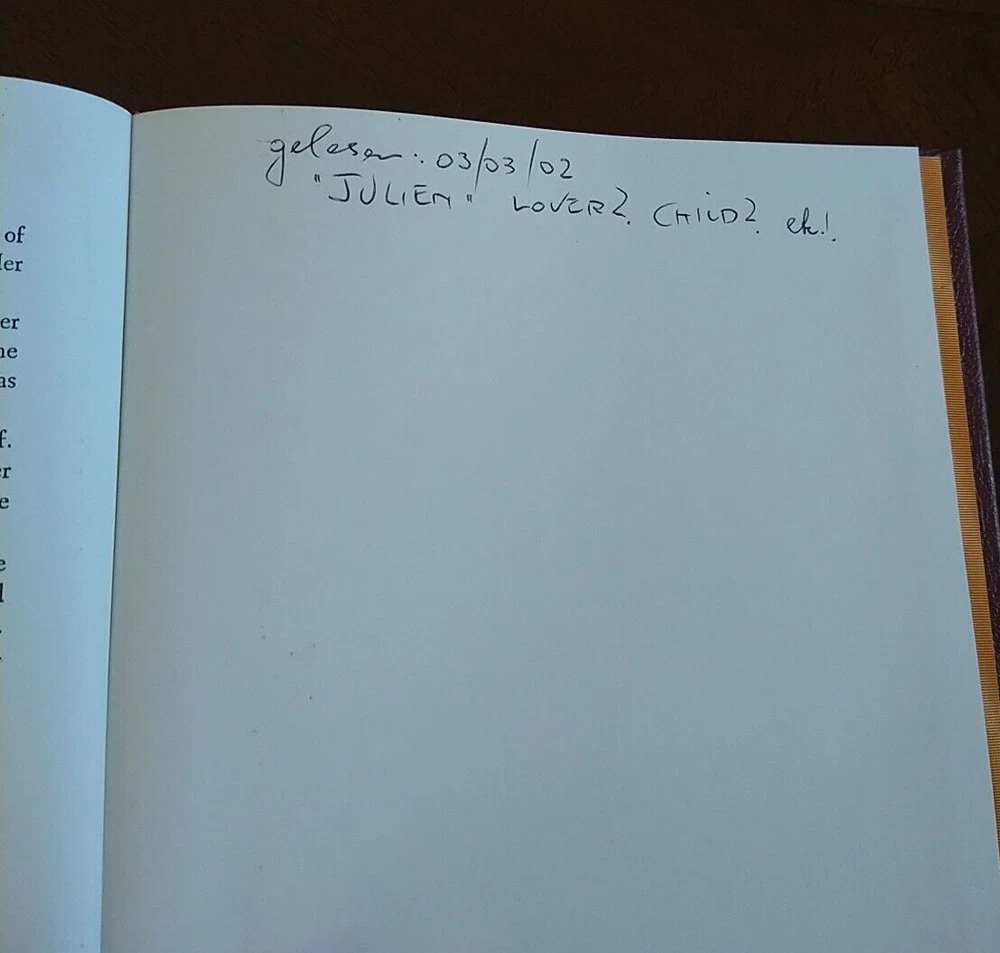 of
er
er
ne
as
f.
er
e
e
l
gelesen: 03/03/02
"JULIEN" LOVER? CHILD?